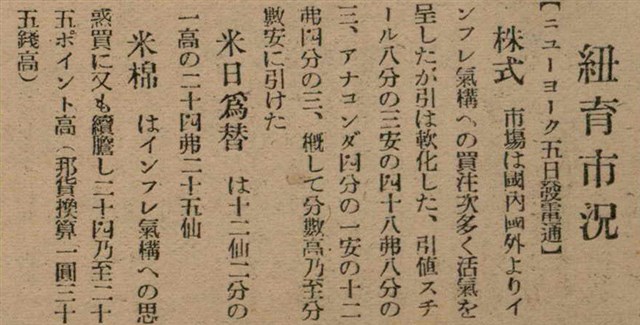 紐育市況
【ニューヨーク五日發電通】
株式 市場は國內國外よりイ
ンフレ氣構への買注次多く活氣を
呈したが引は軟化した、引値スチ
ール八分の三安の四十八弗八分の
三、アナコンダ四分の一安の十二
弗四分の三、概して分數高乃至分
數安に引けた
米日爲替 は十二仙二分の
一高の二十四弗二十五仙
米棉 はインフレ氣構への思
惑買に又も續騰し二十四乃至二十
五ポイント高(邦貨換算一圓三十
五錢高)